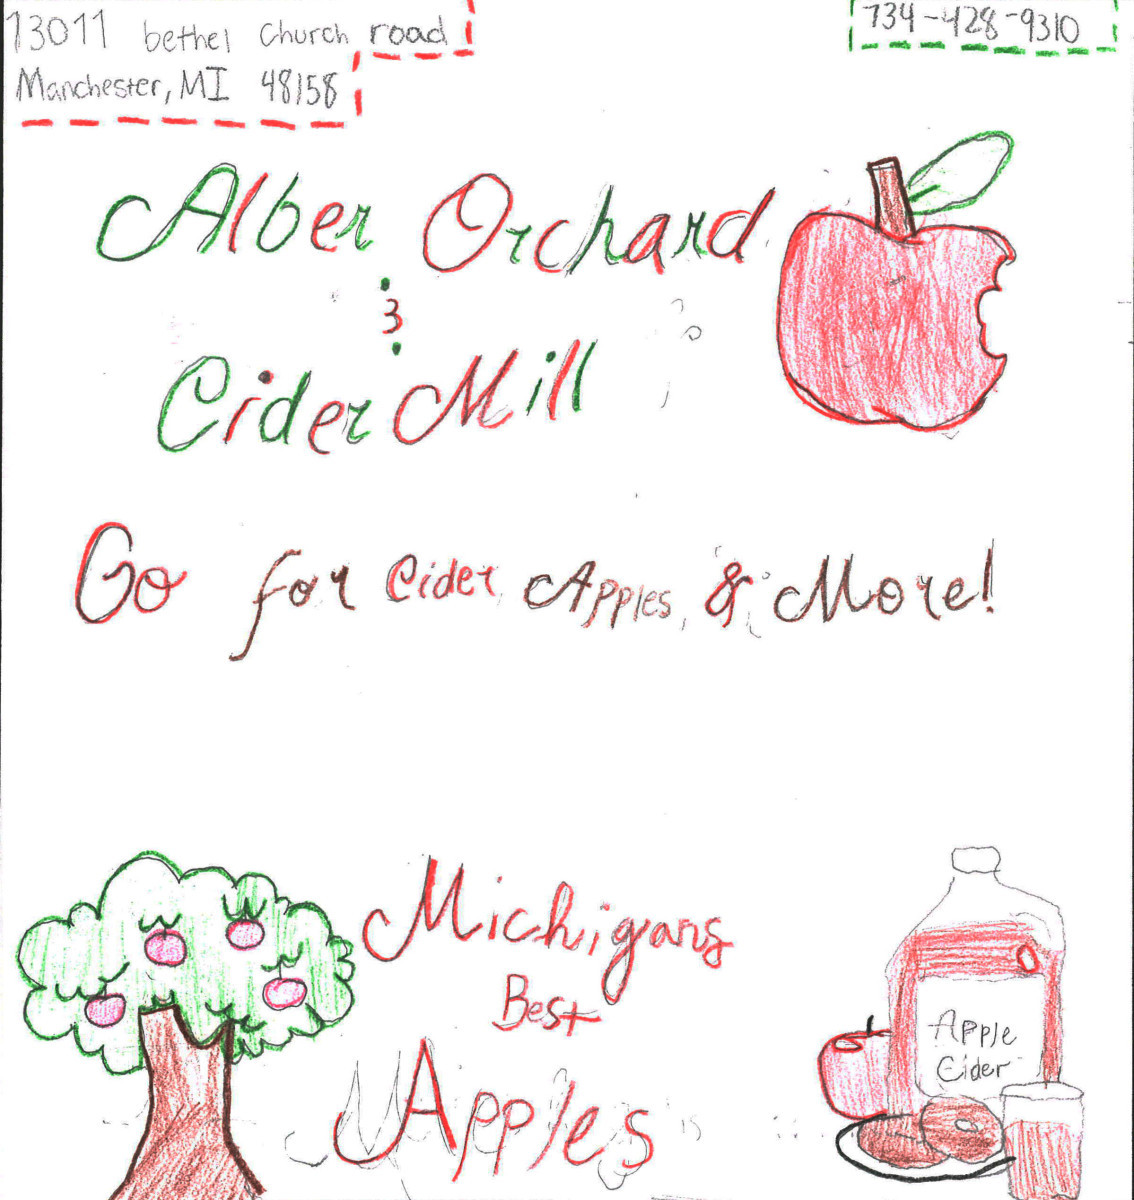 13011 bethel Church road
734-428-9310
Manchester, MI 48158
Alber Orchard
&
Cider Mill
Go for Cider, Apples, & More!
Michigans
Best
Apples
Apple
Cider